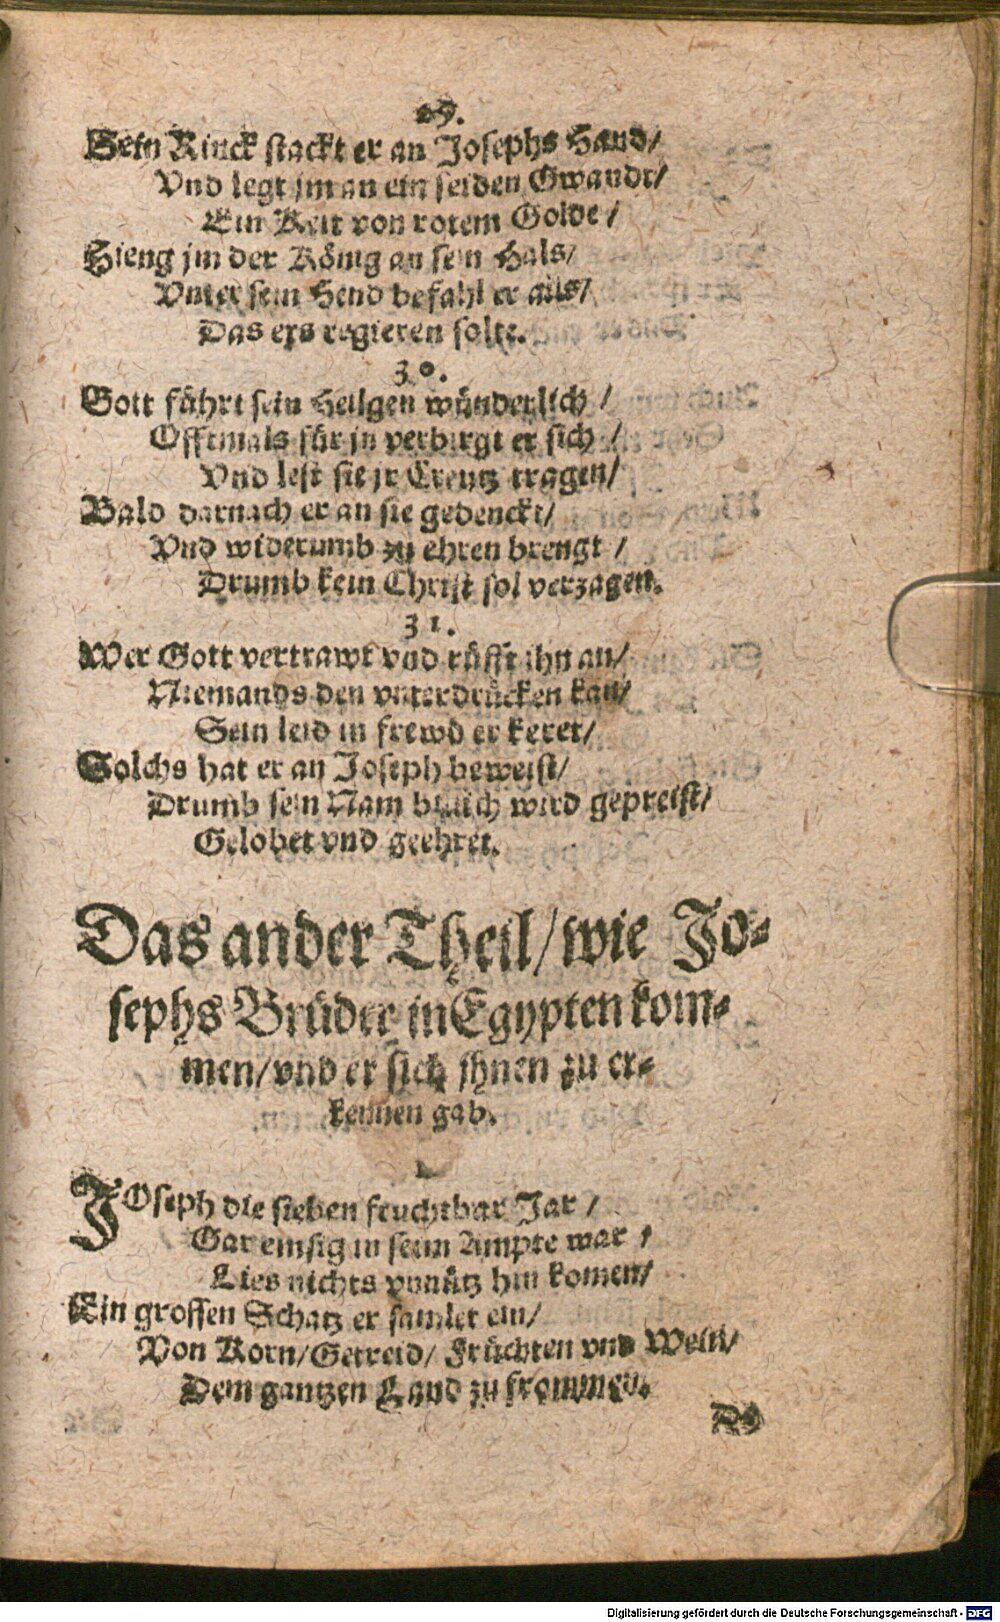 29.
Sein Rinck stackt er an Josephs Hand/
Vnd legt jm an ein seiden Gwandt/
Ein Kett von rotem Golde/
Hieng jm der König an sein Hals/
Vnter sein Hend befahl er alls/
Das ers regieren solte.
30.
Gott führt sein Heilgen wünderlich/
Offtmals für jn verbirgt er sich/
Vnd lest sie jr Creutz tragen/
Bald darnach er an sie gedenckt/
Vnd widerumb zu ehren brengt/
Drumb kein Christ sol verzagen.
31.
Wer Gott vertrawt vnd rüfft ihn an/
Niemands den vnterdrücken kan/
Sein leid in frewd er keret/
Solchs hat er an Joseph beweist/
Drumb sein Nam billich wird gepreist/
Gelobet vnd geehret.
Das ander Theil/wie Jo-
sephs Brüder in Egypten kom-
men/vnd er sich jhnen zu er-
kennen gab.
1.
JOseph die sieben fruchtbar Jar/
Gar emsig in seim Ampte war/
Lies nichts vnnütz hin komen/
Ein grossen Schatz er samlet ein/
Von Korn/Getreid/Früchten vnd Wein/
Dem gantzen Land zu frommen.
Digitalisierung gefördert durch die Deutsche Forschungsgemeinschaft - DFG